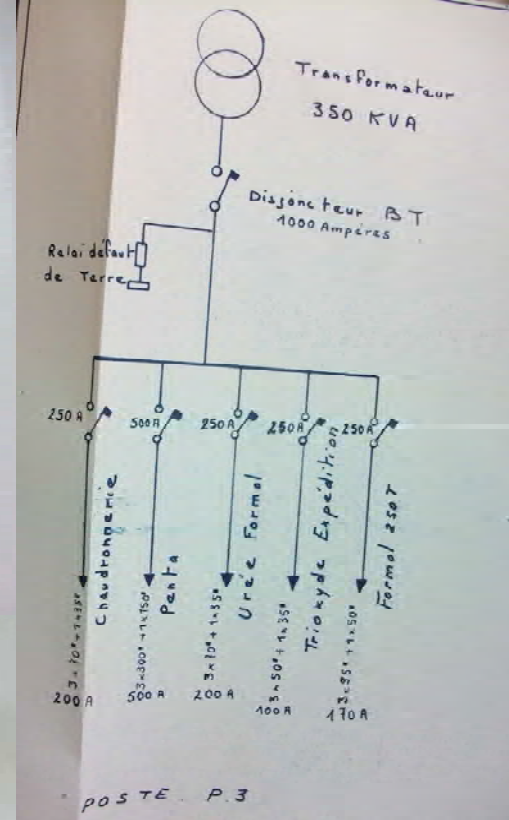 Transformateur
350 KVA
Disjoncteur BT
1000 Ampères
Relai défaut
de Terre
250A
500A
250A
250A
250A
Chaudronnerie
Penta
Urée Formol
Trioxyde Expédition
Formol 250T
3x70²+1x35²
3x300²+1x150²
3x70²+1x35²
3x50²+1x35²
3x95²+1x50²
200 A
500A
200A
100A
170A
POSTE P.3